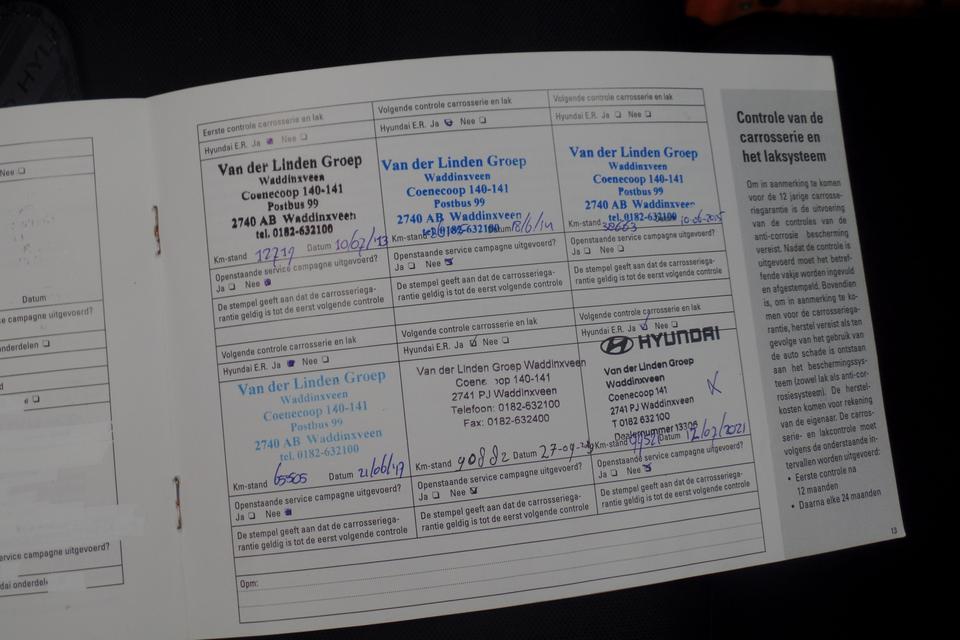 Nee
Datum
ce campagne uitgevoerd?
onderdelen
service campagne uitgevoerd?
dai onderdel
Eerste controle carrosserie en lak
Hyundai E.R. Ja Nee
Van der Linden Groep
Waddinxveen
Coenecoop 140-141
Postbus 99
2740 AB Waddinxveen
tel. 0182-632100
Km-stand 12719 Datum 10/07/'13
Openstaande service campagne uitgevoerd?
Ja Nee
De stempel geeft aan dat de carrosseriega-
rantie geldig is tot de eerst volgende controle
Volgende controle carrosserie en lak
Hyundai E.R. Ja Nee
Van der Linden Groep
Waddinxveen
Coenecoop 140-141
Postbus 99
2740 AB Waddinxveen
tel. 0182-632100
Km-stand Datum 18/6/14
Openstaande service campagne uitgevoerd?
Ja Nee
De stempel geeft aan dat de carrosseriega-
rantie geldig is tot de eerst volgende controle
Volgende controle carrosserie en lak
Hyundai E.R. Ja Nee
Van der Linden Groep
Waddinxveen
Coenecoop 140-141
Postbus 99
2740 AB Waddinxveen
tel. 0182-632100
Km-stand 38663 10-06-2015
Openstaande service campagne uitgevoerd?
Ja Nee
De stempel geeft aan dat de carrosseriega-
rantie geldig is tot de eerst volgende controle
Volgende controle carrosserie en lak
Hyundai E.R. Ja Nee
Van der Linden Groep
Waddinxveen
Coenecoop 140-141
Postbus 99
2740 AB Waddinxveen
tel. 0182-632100
Km-stand 65505 Datum 21/06/'17
Openstaande service campagne uitgevoerd?
Ja Nee
De stempel geeft aan dat de carrosseriega-
rantie geldig is tot de eerst volgende controle
Volgende controle carrosserie en lak
Hyundai E.R. Ja Nee
Van der Linden Groep Waddinxveen
140-141
2741 PJ Waddinxveen
Telefoon: 0182-632100
Fax: 0182-632400
Km-stand 90882 Datum
Openstaande service campagne uitgevoerd?
Ja Nee
De stempel geeft aan dat de carrosseriega-
rantie geldig is tot de eerst volgende controle
Volgende controle carrosserie en lak
Hyundai E.R. Ja Nee
HYUNDAI
Van der Linden Groep
Waddinxveen
Coenecoop 141
2741 PJ Waddinxveen
T 0182 632 100
Dealernummer 13306
Km-stand Datum 12/07/2021
Openstaande service campagne uitgevoerd?
Ja Nee
De stempel geeft aan dat de carrosseriega-
rantie geldig is tot de eerst volgende controle
Opm:
Controle van de
carrosserie en
het laksysteem
Om in aanmerking te komen
voor de 12 jarige carrosse-
riegarantie is de uitvoering
van de controles van de
anti-corrosie bescherming
vereist. Nadat de controle is
uitgevoerd moet het betref-
fende vakje worden ingevuld
en afgestempeld. Bovendien
is, om in aanmerking te ko-
men voor de carrosseriega-
rantie, herstel vereist als ten
gevolge van het gebruik van
de auto schade is ontstaan
aan het beschermingssys-
teem (zowel lak als anti-cor-
rosiesysteem). De herstel-
kosten komen voor rekening
van de eigenaar. De carros-
serie- en lakcontrole moet
volgens de onderstaande in-
tervallen worden uitgevoerd:
• Eerste controle na
12 maanden
• Daarna elke 24 maanden
13